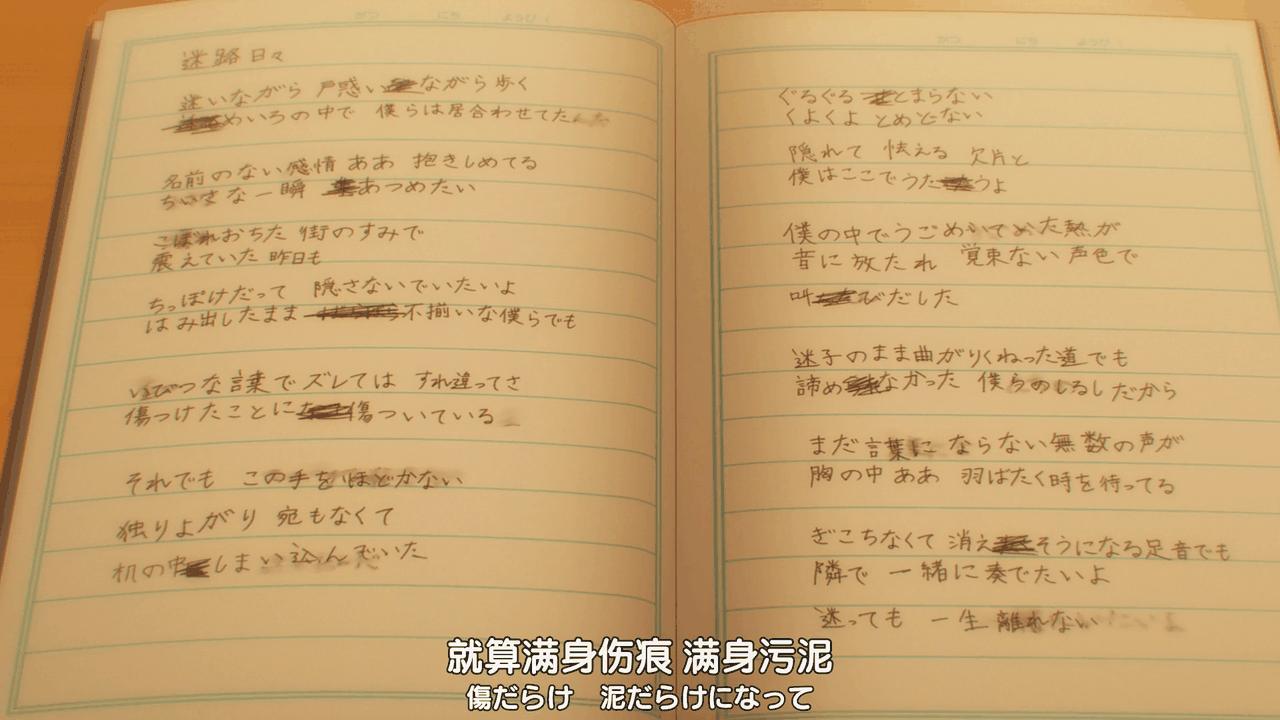 迷路日々
迷いながら 戸惑いながら歩く
めいろの中で 僕らは居合わせてた
名前のない感情 ああ 抱きしめてる
ちいさな一瞬 あつめたい
こぼれおちた 街のすみで
震えていた 昨日も
ちっぽけだって 隠さないでいたいよ
はみ出したまま 不揃いな僕らでも
いびつな言葉で ズレては すれ違ってさ
傷つけたことに傷ついている
それでも この手をほどかない
独りよがり 宛もなくて
机の中しまい込んでいた
ぐるぐる とまらない
くよくよ とめどない
隠れて 怯える 欠片と
僕はここでうたうよ
僕の中でうごめいてた熱が
音に放たれ 覚束ない声色で
叫びだした
迷子のまま曲がりくねった道でも
諦めなかった 僕らのしるしだから
まだ言葉に ならない無数の声が
胸の中 ああ 羽ばたく時を待ってる
ぎこちなくて 消えそうになる足音でも
隣で 一緒に奏でたいよ
迷っても 一生 離れない
就算满身伤痕 满身污泥
傷だらけ 泥だらけになって